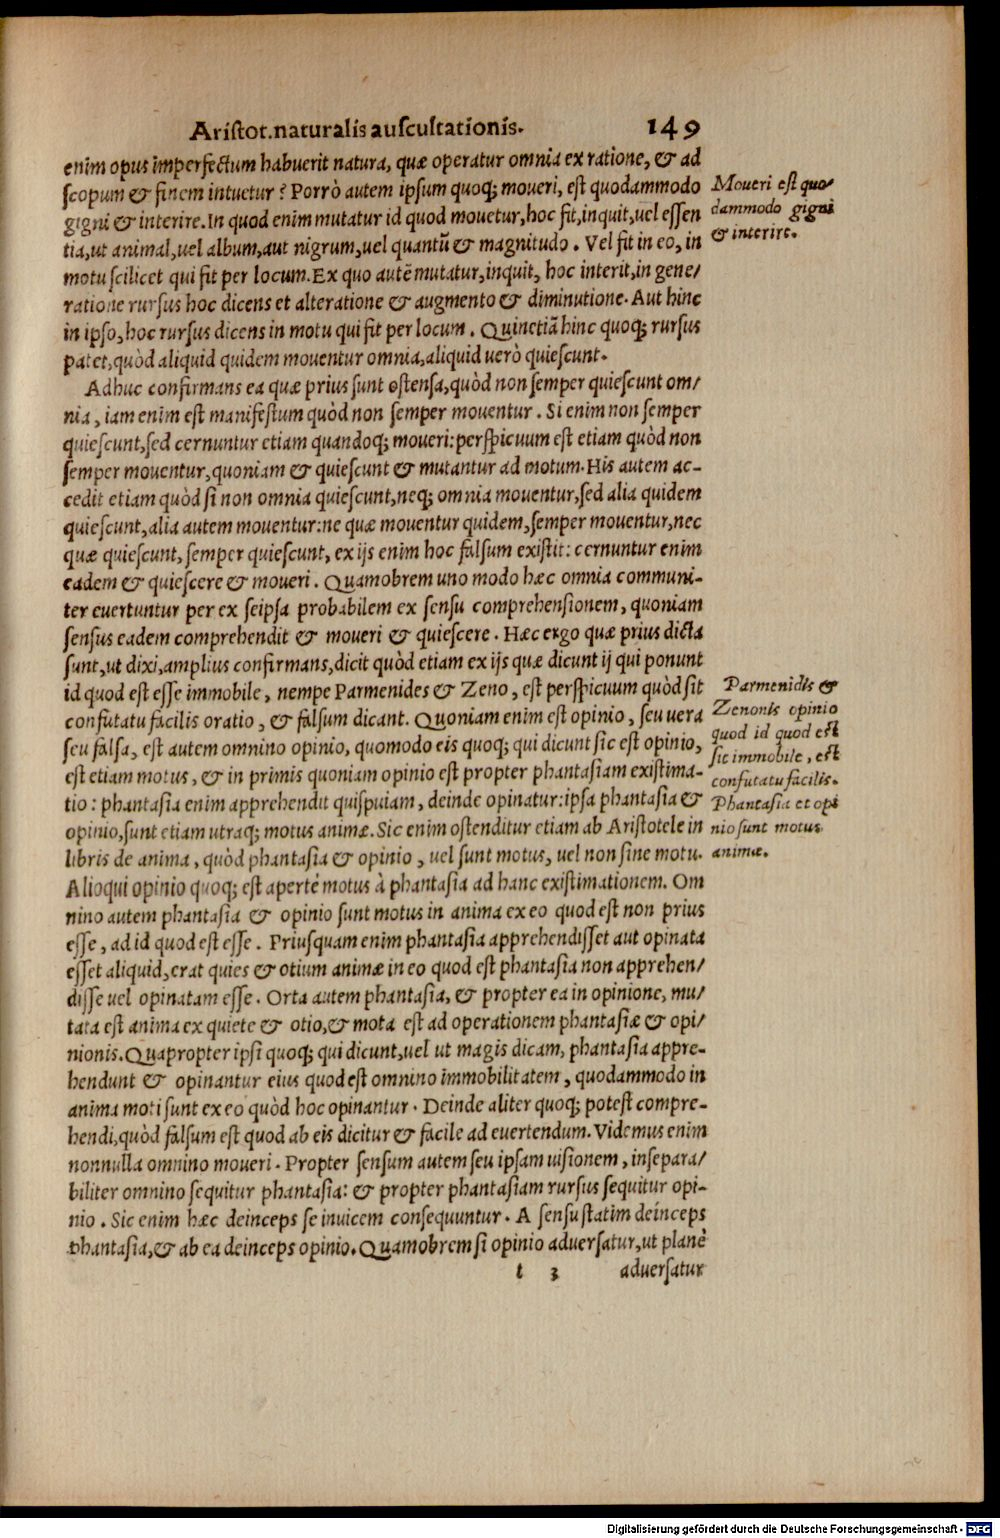 Aristot.naturalis auscultationis. 149
enim opus imperfectum habuerit natura, quæ operatur omnia ex ratione, & ad
scopum & finem intuetur? Porrò autem ipsum quoq; moueri, est quodammodo
gigni & interire. In quod enim mutatur id quod mouetur, hoc fit, inquit, uel essen
tia, ut animal, uel album, aut nigrum, uel quantũ & magnitudo. Vel fit in eo, in
motu scilicet qui fit per locum. Ex quo autẽ mutatur, inquit, hoc interit, in gene/
ratione rursus hoc dicens et alteratione & augmento & diminutione. Aut hinc
in ipso, hoc rursus dicens in motu qui fit per locum. Quinetiã hinc quoq; rursus
patet, quòd aliquid quidem mouentur omnia, aliquid uerò quiescunt.
Moueri est quo/
dammodo gigni
& interire.
Adhuc confirmans ea quæ prius sunt ostensa, quòd non semper quiescunt om/
nia, iam enim est manifestum quòd non semper mouentur. Si enim non semper
quiescunt, sed cernuntur etiam quandoq; moueri: perspicuum est etiam quòd non
semper mouentur, quoniam & quiescunt & mutantur ad motum. His autem ac-
cedit etiam quòd si non omnia quiescunt, neq; omnia mouentur, sed alia quidem
quiescunt, alia autem mouentur: ne quæ mouentur quidem, semper mouentur, nec
quæ quiescunt, semper quiescunt, ex ijs enim hoc falsum existit: cernuntur enim
eadem & quiescere & moueri. Quamobrem uno modo hæc omnia communi-
ter euertuntur per ex seipsa probabilem ex sensu comprehensionem, quoniam
sensus eadem comprehendit & moueri & quiescere. Hæc ergo quæ prius dicta
sunt, ut dixi, amplius confirmans, dicit quòd etiam ex ijs quæ dicunt ij qui ponunt
id quod est esse immobile, nempe Parmenides & Zeno, est perspicuum quòd sit
confutatu facilis oratio, & falsum dicant. Quoniam enim est opinio, seu uera
seu falsa, est autem omnino opinio, quomodo eis quoq; qui dicunt sic est opinio,
est etiam motus, & in primis quoniam opinio est propter phantasiam existima-
tio: phantasia enim apprehendit quispiam, deinde opinatur: ipsa phantasia &
opinio, sunt etiam utraq; motus animæ. Sic enim ostenditur etiam ab Aristotele in
libris de anima, quòd phantasia & opinio, uel sunt motus, uel non sine motu.
Alioqui opinio quoq; est apertè motus à phantasia ad hanc existimationem. Om
nino autem phantasia & opinio sunt motus in anima ex eo quod est non prius
esse, ad id quod est esse. Priusquam enim phantasia apprehendisset aut opinata
esset aliquid, erat quies & otium animæ in eo quod est phantasia non apprehen/
disse uel opinatam esse. Orta autem phantasia, & propter ea in opinione, mu/
tata est anima ex quiete & otio, & mota est ad operationem phantasiæ & opi/
nionis. Quapropter ipsi quoq; qui dicunt, uel ut magis dicam, phantasia appre-
hendunt & opinantur eius quod est omnino immobilitatem, quodammodo in
anima moti sunt ex eo quòd hoc opinantur. Deinde aliter quoq; potest compre-
hendi, quòd falsum est quod ab eis dicitur & facile ad euertendum. Videmus enim
nonnulla omnino moueri. Propter sensum autem seu ipsam uisionem, insepara/
biliter omnino sequitur phantasia: & propter phantasiam rursus sequitur opi-
nio. Sic enim hæc deinceps se inuicem consequuntur. A sensu statim deinceps
phantasia, & ab ea deinceps opinio. Quamobrem si opinio aduersatur, ut planè
Parmenidis &
Zenonis opinio
quod id quod est
sit immobile, est
confutatu facilis.
Phantasia et opi
nio sunt motus
animæ.
t 3 aduersatur
Digitalisierung gefördert durch die Deutsche Forschungsgemeinschaft - DFG